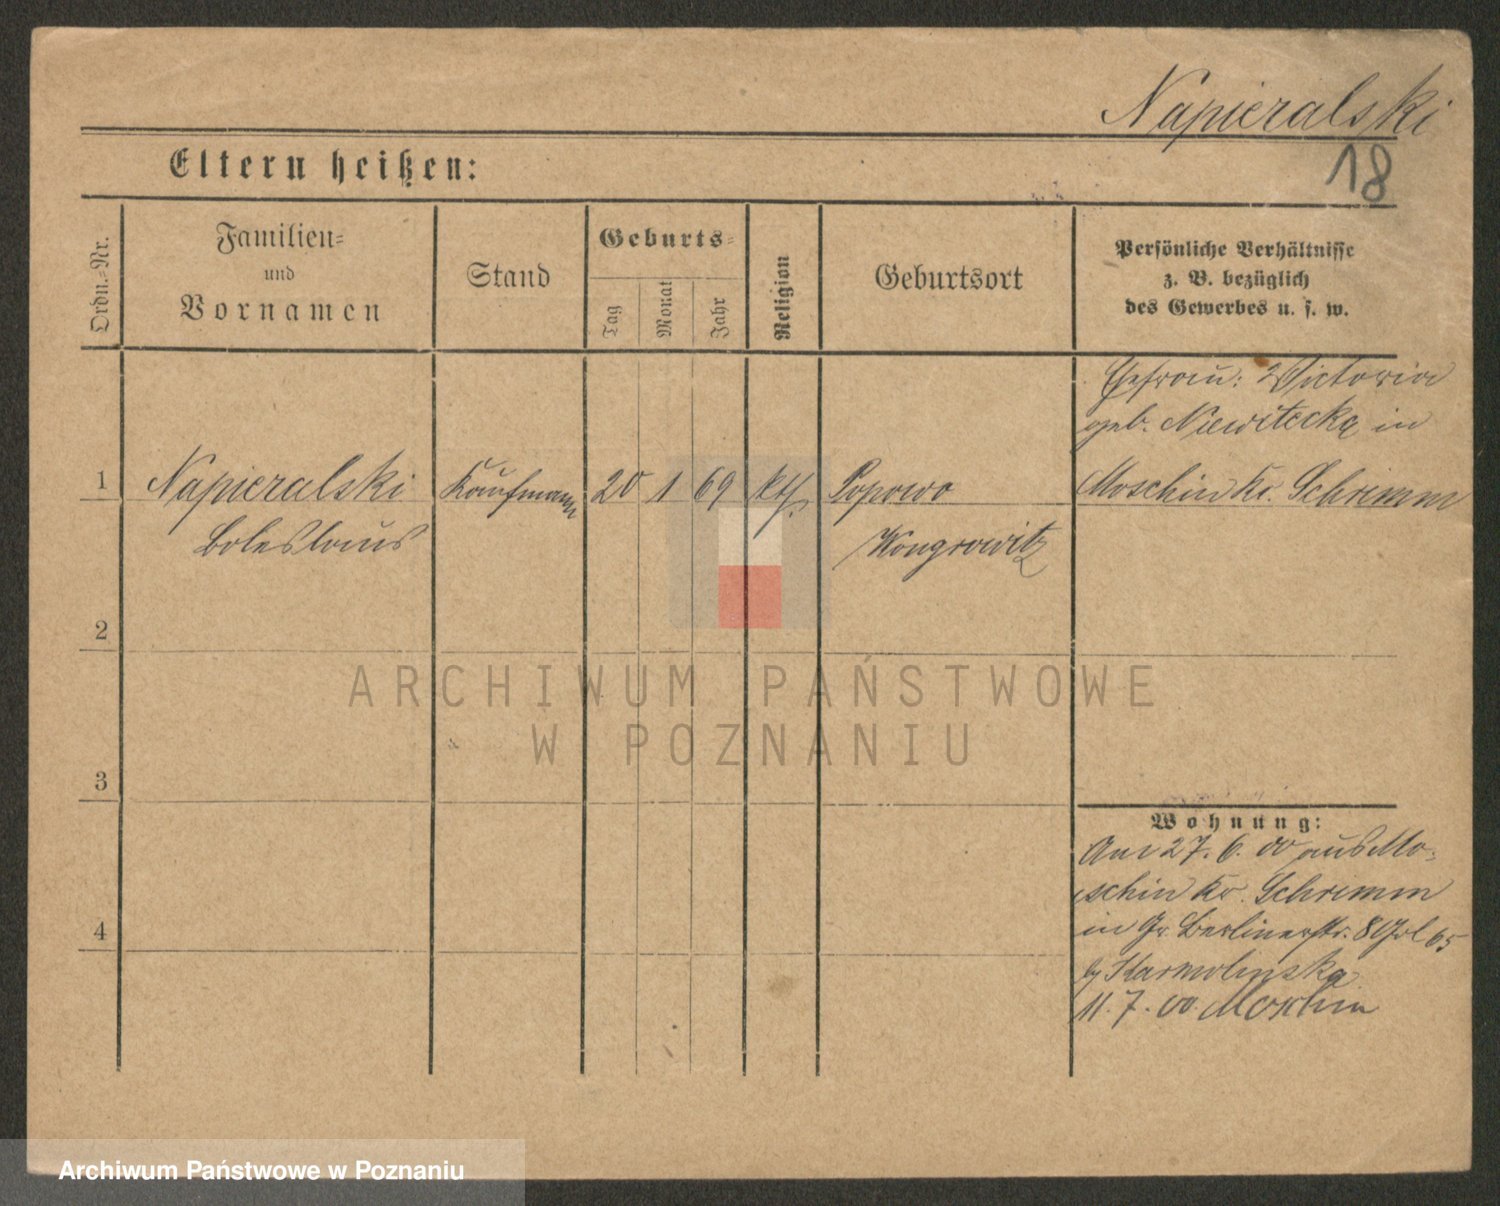 Napieralski
18
Eltern heißen:
Ordn.-Nr.
Familien-
und
Vornamen
Stand
Geburts-
Tag
Monat
Jahr
Religion
Geburtsort
Persönliche Verhältnisse
z. B. bezüglich
des Gewerbes u. s. w.
Ehefrau: Victoria
geb. Niewitecka in
1 Napieralski Kaufmann 20 1 69 kth. Popowo Moschin Kr. Schrimm
Boleslaus Wongrowitz
2
3
4
Wohnung:
Am 27. 6. 00 aus Mo-
schin Kr. Schrimm
in Gr. Berlinerstr. 8 65
by Karmolinska
11. 7. 00. Moschin
ARCHIWUM PAŃSTWOWE
W POZNANIU
Archiwum Państwowe w Poznaniu